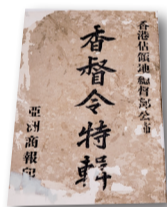 香港佔領地總督部公布
香督令特輯
亞洲商報印